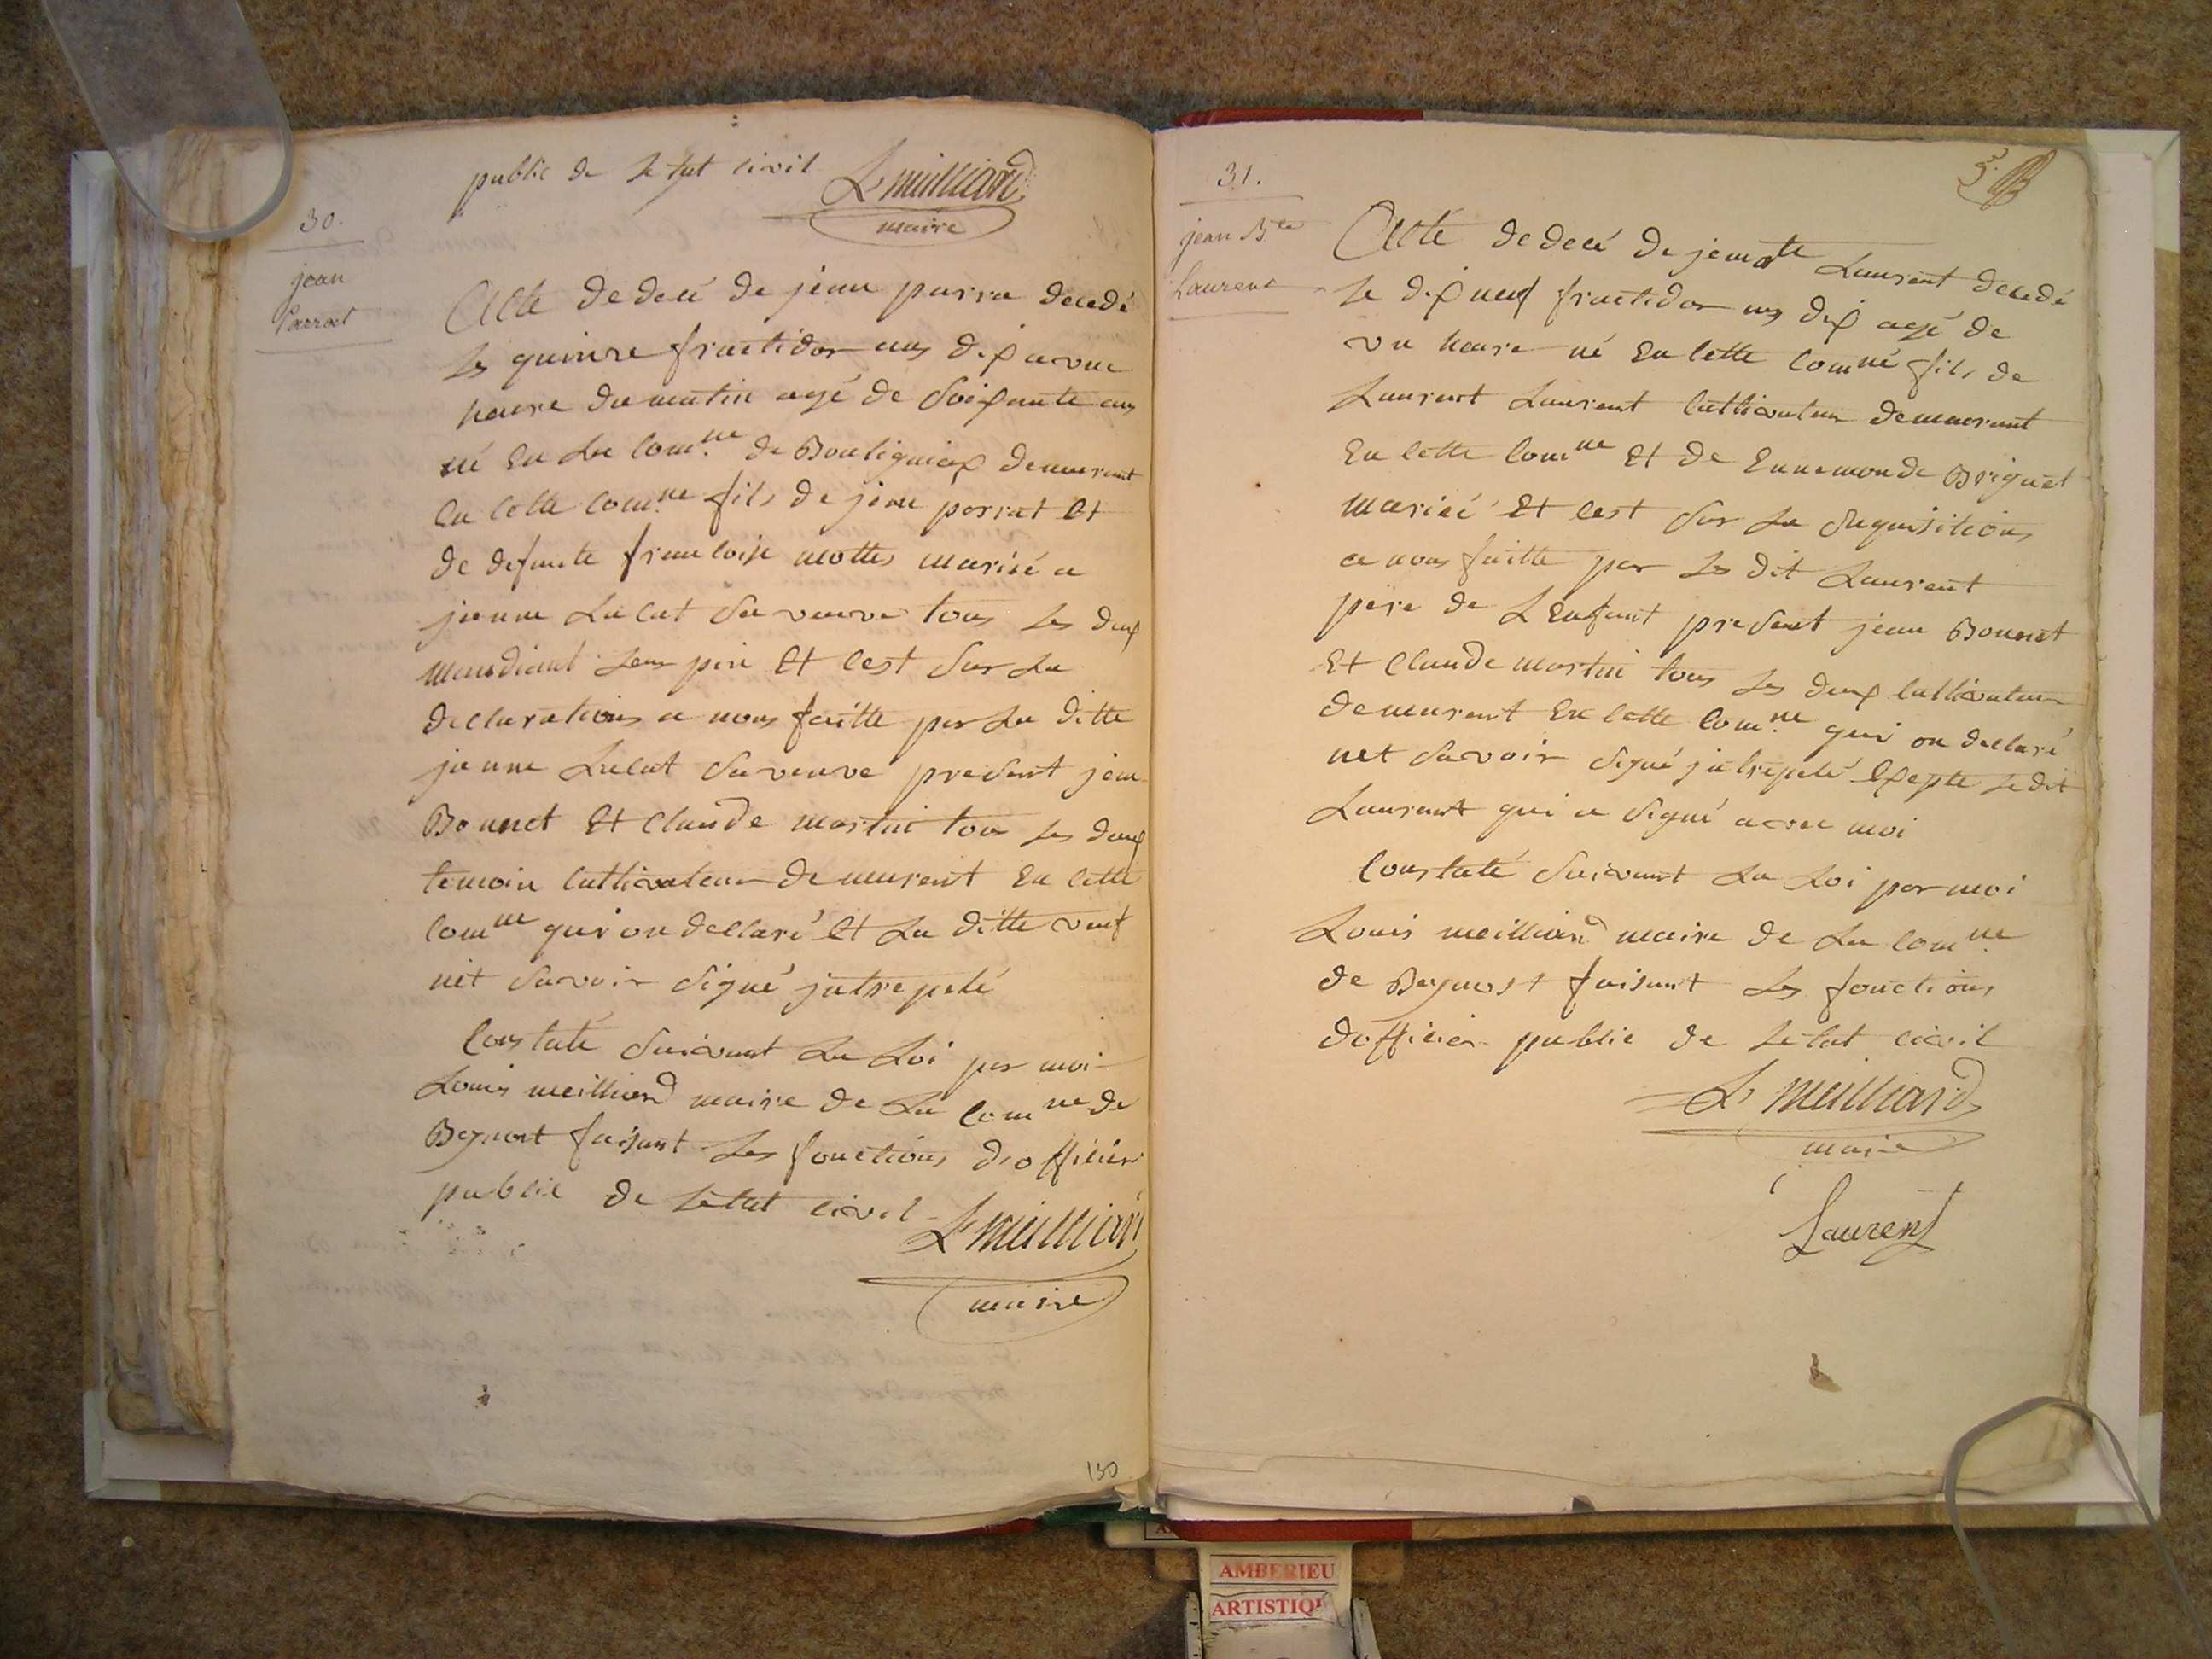 public de Letat civil L meilliard
maire
30.
jean
Parrat
Acte de decé de jean parra decedé
Le quinze fructidor ans dix a une
heure du matin agé de Soixante ans
né En La Com.ne de Bouligniaex demeurant
En Cette Com.ne fils de jean parrat Et
de defunte francoise mottes marié a
jeanne Lulat Sa veuve tous Les deux
mandiant Leur pin Et Cest Sur La
declarations a nous faitte par La ditte
jeanne Lulat Sa veuve present jean
Bonnet Et Claude martin tous Les deux
temoin Cultivateur demurent En Cette
Comne qui on dellaré Et La ditte veuf
net Savoir Signé jntrepelé
Constaté Suivant La Loi par moi
Louis meilliard maire de La Comne de
Beynost faisant Les fonctions d'officier
public de Letat civil L meilliard
maire
130
31.
jean Bte
Laurent
5 B
Acte de decé de jean Bte Laurent decedé
Le dix neuf fructidor ans dix agé de
un heure né En Cette Comne fils de
Laurent Laurent Cultivateur demeurant
En Cette Comne Et de Ennemonde Briguet
mariéé Et Cest Sur La Requisitions
a nous faitte par Les dit Laurent
pere de L Enfant present jean Bonnet
Et Claude martin tous Les deux Cultivateur
demeurent En Cette Com.ne qui on dellaré
net Savoir Signé jntrepelé Exepte Le dit
Laurent qui a Signé avec moi
Constaté Suivant La Loi par moi
Louis meilliard maire de La Comne
de Beynost faisant Les fonctions
dofficier public de Letat civil
L meilliard
maire
Laurent
AMBERIEU
ARTISTIQ